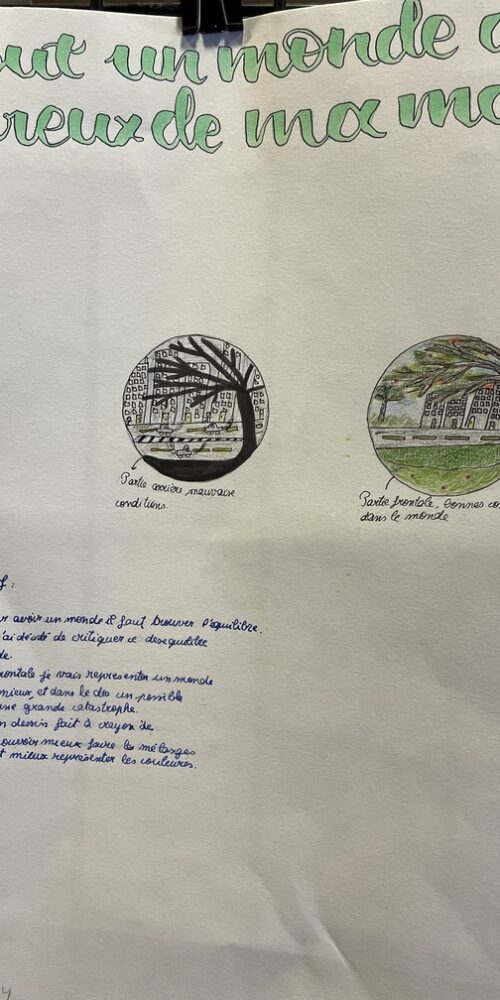 out un monde
reux de ma
Partie arrière mauvaise
conditions.
Partie frontale, bonnes con
dans le monde
f :
r avoir un monde il faut trouver l'équilibre.
'ai décidé de critiquer ce desequilibre
de.
rontale je vais representer un monde
mieux, et dans le dos un possible
une grande catastrophe.
n dessin fait à crayon de
ouvoir mieux faire les mélanges
t mieux représenter les couleures.